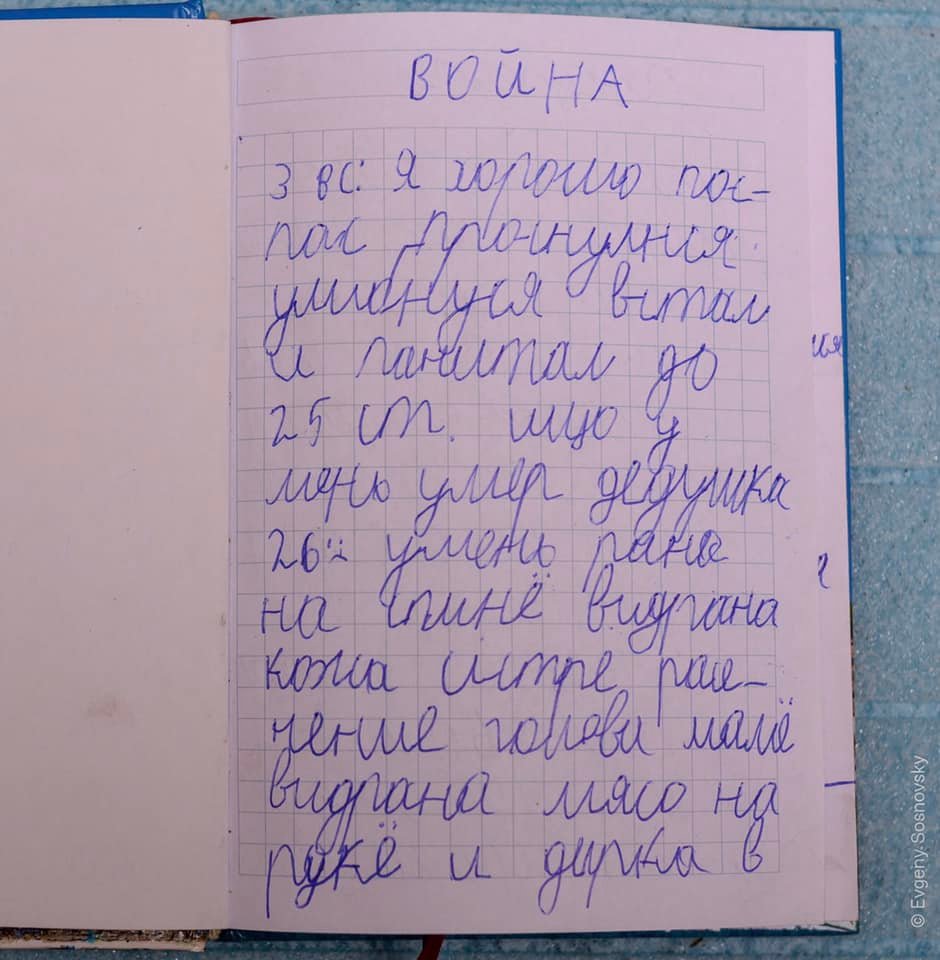 ВОЙНА
3 вс: Я хорошо пос-
пал проснулися
улыбнуся встал
и пачитал до
25 ст. ищо у
мень умер дедушка
26-й умень рана
на спинё видрана
кожа систре расе-
чение голови мамё
видрана мясо на
рукё и дирка в
© Evgeny Sosnovsky